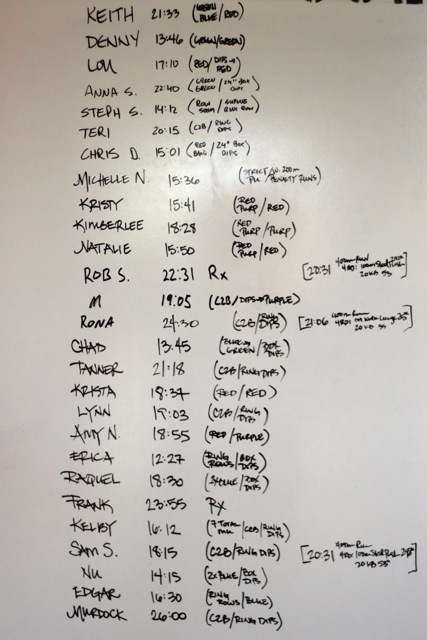 KEITH 21:33 (GREEN BLUE/RED)
DENNY 13:46 (GREEN/GREEN)
LOU 17:10 (RED/DIPS→ RED)
ANNA S. 22:40 (GREEN GREEN/24" BOX DIPS)
STEPH S. 14:12 (ROW
TERI 20:15 (C2B/RING DIPS)
CHRIS D. 15:01 (RED BAND/24" BOX DIPS)
MICHELLE N. 15:36 (STRICT 200m PU/PENALTY RUNS)
KRISTY 15:41 (RED PURP/RED)
KIMBERLEE 18:28 (RED PURP/PURP)
NATALIE 15:50 (RED PURP/RED)
ROB S. 22:31 Rx [20:31 400m RUN
M 19:05 (C2B/DIPS→PURPLE)
RONA 24:30 (C2B/RING DIPS) [21:06
CHAD 13:45 GREEN/BOX DIPS)
TANNER 21:18 (C2B/RING DIPS)
KRISTA 18:34 (RED/RED)
LYNN 19:03 (C2B/RING DIPS)
AMY N. 18:55 (RED/PURPLE)
ERICA 12:27 (RING ROWS/BOX DIPS)
RAQUEL 18:30 BLUE/BOX DIPS)
FRANK 23:55 Rx
KELBY 16:12 (7 TOTAL MU/C2B/RING DIPS)
SAM S. 18:15 (C2B/RING DIPS) [20:31 400m Run
NU 14:15 (2x BLUE/BOX DIPS)
EDGAR 16:30 (RING ROWS/BLUE)
MURDOCK 26:00 (C2B/RING DIPS)